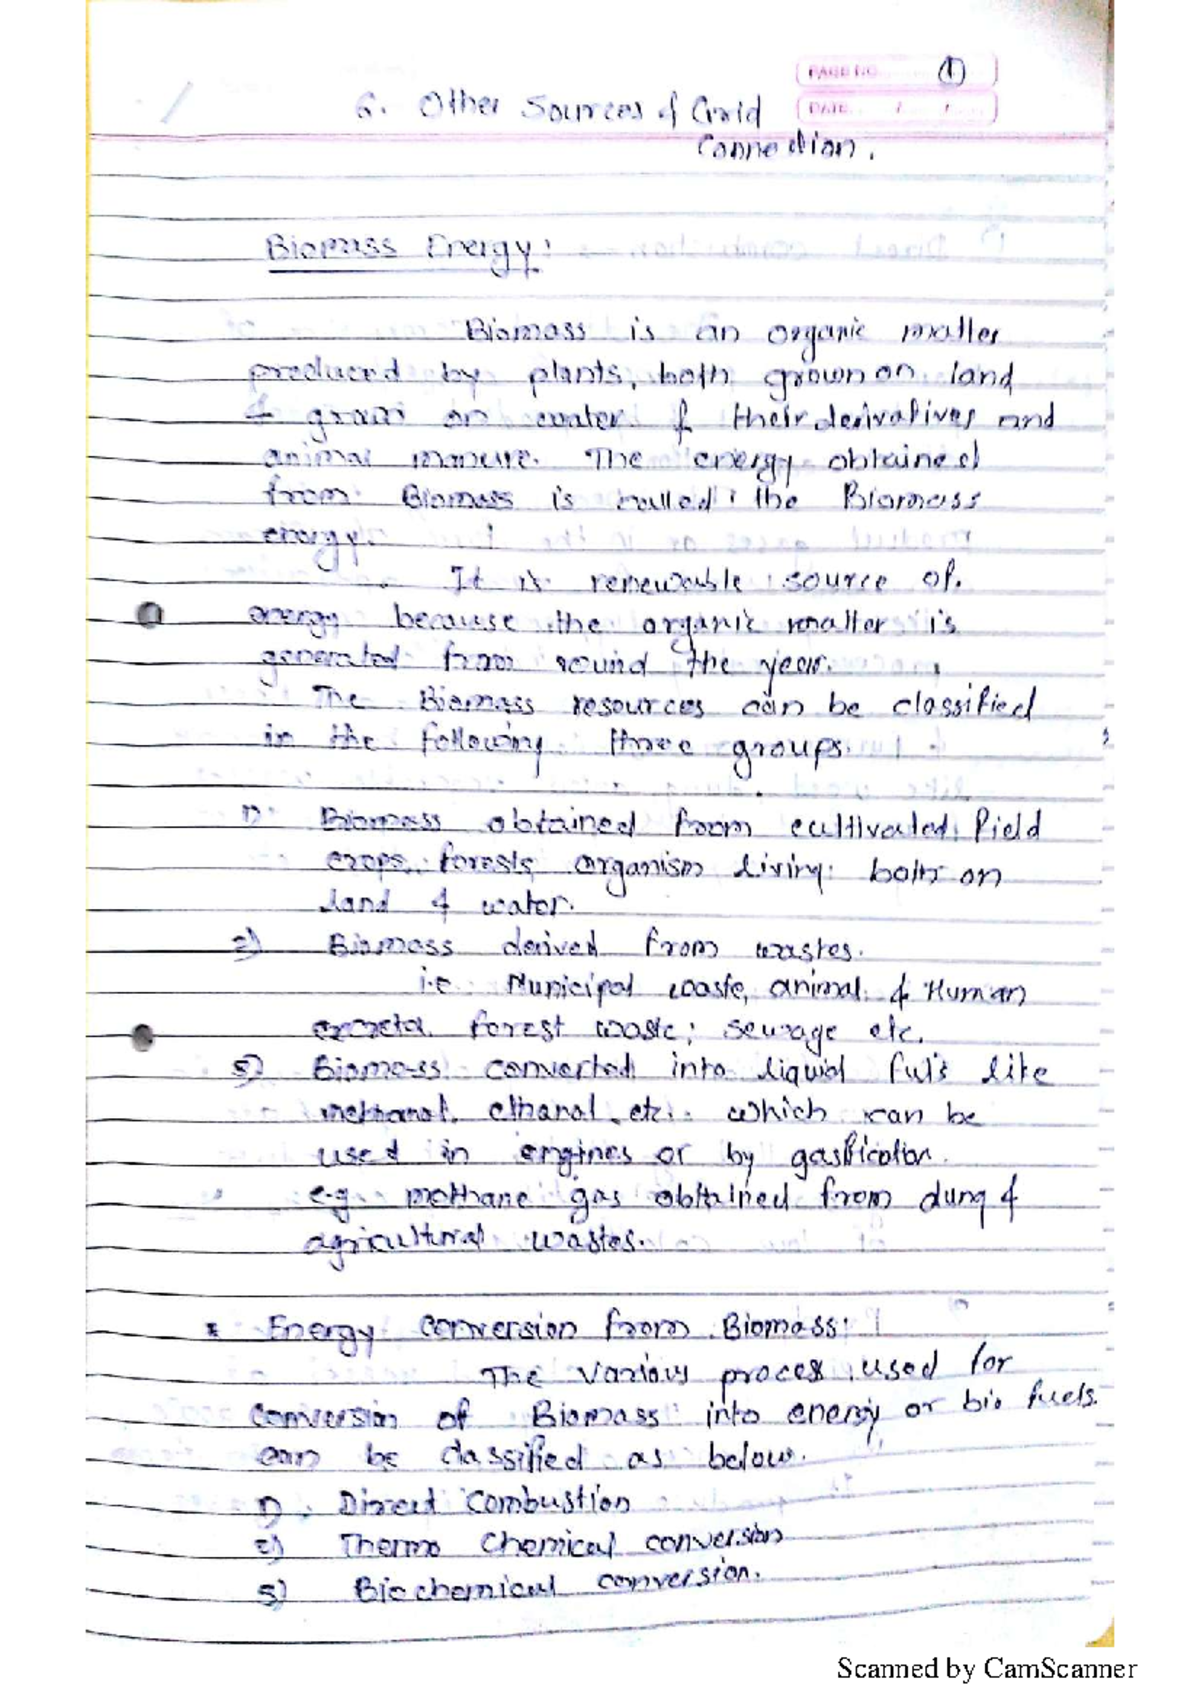 PAGE NO. 1
DATE / /
6. Other Sources of Grid
Connection.
Biomass Energy:
Biomass is an organic matter
produced by plants, both grown on land
& grown on water & their derivatives and
animal manure. The energy obtained
from Biomass is called the Biomass
energy.
It is renewable source of.
energy because the organic matter is
generated from round the year.
The Biomass resources can be classified
in the following three groups.
1) Biomass obtained from cultivated field
crops, forests, organism living both on
land & water.
2) Biomass derived from wastes.
i.e Municipal waste, animal & Human
excreta, forest waste, sewage etc.
3) Biomass converted into liquid fuls like
methanol, ethanol, etc. which can be
used in engines or by gasification.
e.g. methane gas obtained from dung &
agricultural wastes.
* Energy conversion from Biomass:
The various proces used for
conversion of Biomass into energy or bio fuels.
can be classified as below.
1) Direct Combustion
2) Thermo Chemical conversion
3) Biochemical conversion.
Scanned by CamScanner